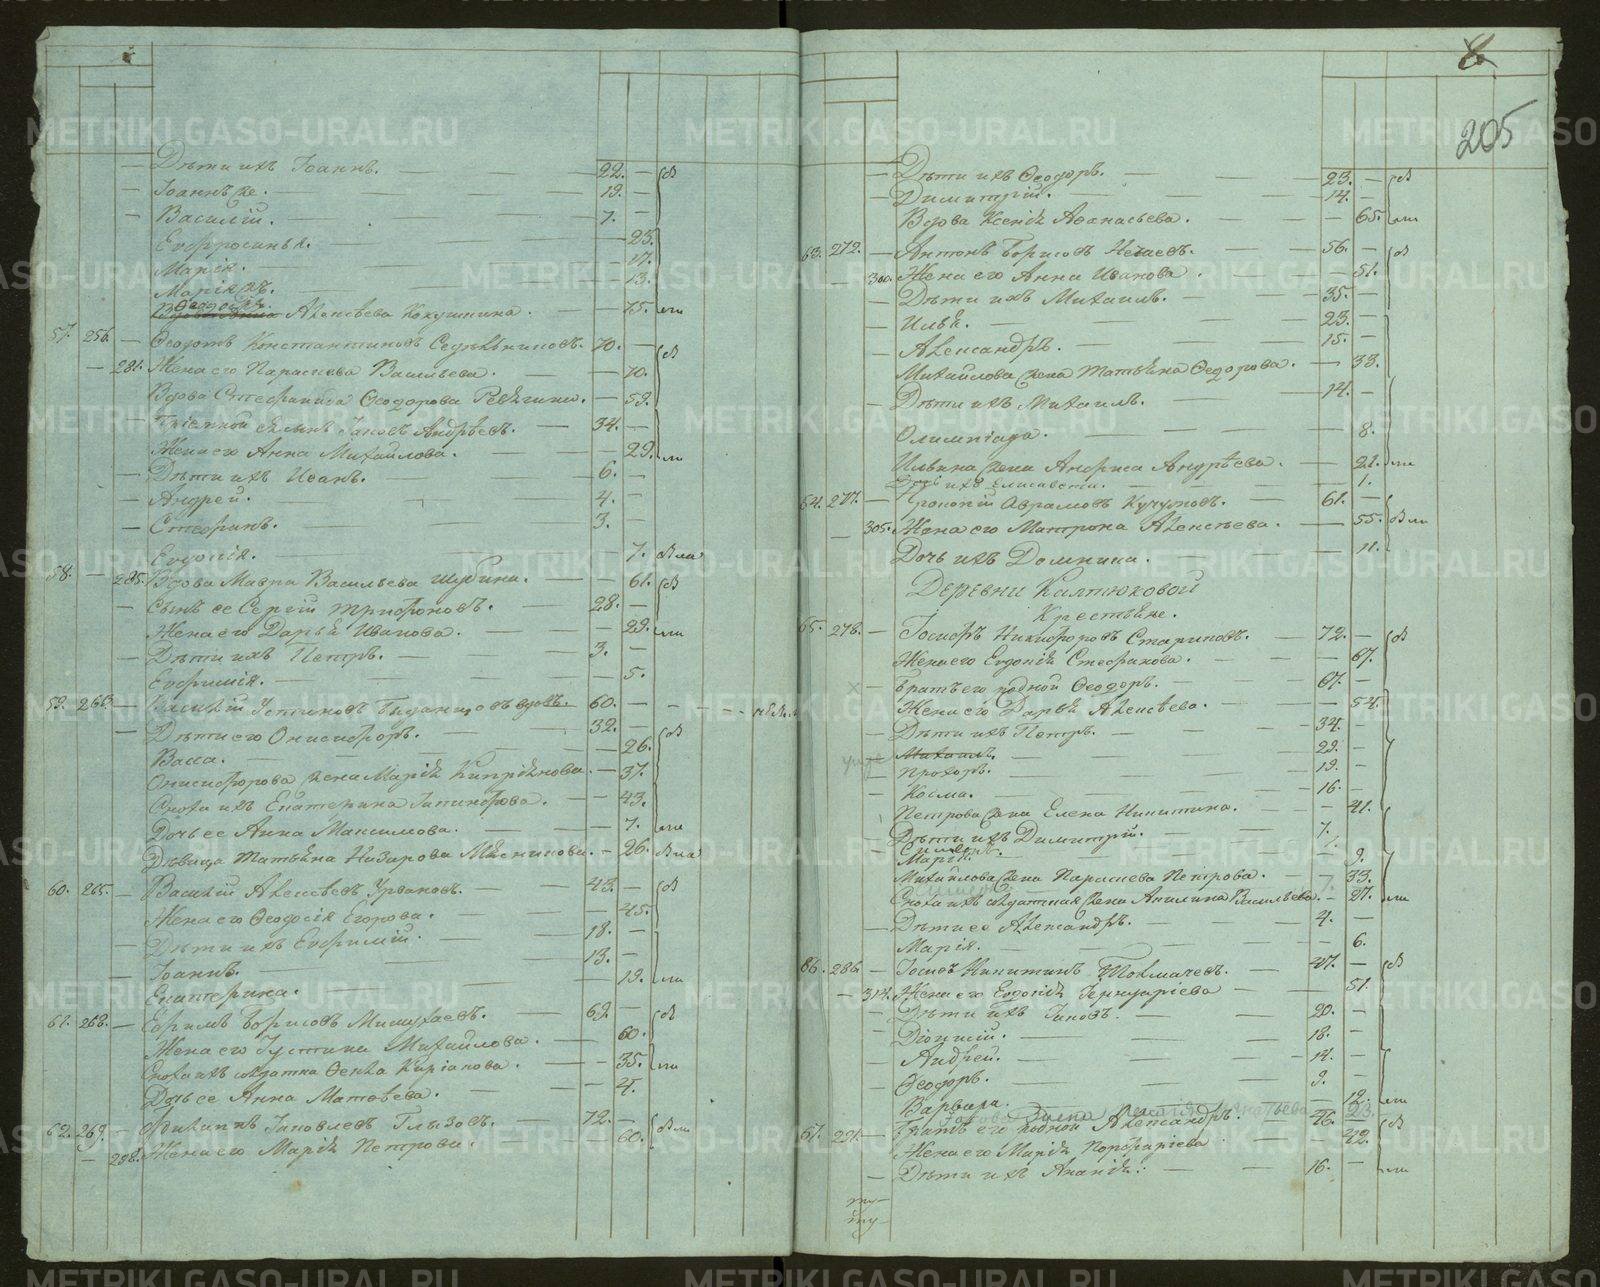 Дѣти ихъ Іоаннъ. 22.
Іоаннъ же. 19.
Василій. 7.
Евфросинья. 23.
Марія. 17.
Марія жъ. 13.
Феодосія Алексѣева Кокушкина. 75.
57. 256. Феодотъ Константиновъ Седѣльниковъ. 70.
281. Жена его Параскева Васильева. 70.
Вдова Стефанида Феодорова 59.
Пріемной сынъ Іаковъ Андрѣевъ. 34.
Жена его Анна Михайлова. 29.
Дѣти ихъ Иванъ. 6.
Андрей. 4.
Стефанъ. 3.
Евдокія. 7.
58. 285. Вдова Мавра Васильева Шубина. 61.
Сынъ ее Сергій Трифоновъ. 28.
Жена его Дарья Иванова. 29.
Дѣти ихъ Петръ. 3.
Евфимія. 5.
59. Василій Устиновъ вдовъ. 60.
Дѣти его Онисифоръ. 32.
Васса. 26.
Онисифорова жена Марія Кипріянова. 37.
Сноха ихъ Екатерина Никифорова. 43.
Дочь ее Анна Максимова. 7.
Дѣвица Татьяна Назарова Мясникова. 26.
60. 265. Василій Алексѣевъ 43.
Жена его Феодосія Егорова. 45.
Дѣти ихъ Евфимій. 18.
Іоаннъ. 13.
Екатерина. 19.
61. 268. Ефимъ Борисовъ 69.
Жена его Іустина Михайлова. 60.
Сноха ихъ солдатка Фекла Киріакова. 35.
Дочь ее Анна Матвѣева. 4.
62. 269. Филиппъ Іаковлевъ Глызовъ. 72.
298. Жена его Марія Петрова. 60.
205
Дѣти ихъ Феодоръ. 23.
Димитрій. 14.
Вдова Ксенія Афанасьева. 65.
63. 272. Антонъ Борисовъ Нечаевъ. 56.
300. Жена его Анна Иванова. 51.
Дѣти ихъ Михаилъ. 35.
Илья. 23.
Александръ. 15.
Михайлова жена Татьяна Федорова. 33.
Дѣти ихъ Михаилъ. 14.
Олимпіада. 8.
Ильина жена Анфиса Андрѣева. 21.
Дочь ихъ Елисавета. 1.
64. 277. Прокопій Аврамовъ Кучумовъ. 61.
305. Жена его Матрона Алексѣева. 55.
Дочь ихъ Домнина. 11.
Деревни Калтюковой
Крестьяне.
65. 278. Іосифъ Никифоровъ Стариковъ. 72.
Жена его Евдокія Стефанова. 67.
Братъ его родной Феодоръ. 67.
Жена его Дарья Алексѣева. 54.
Дѣти ихъ Петръ. 34.
Михаилъ. 29.
Прохоръ. 19.
Косма. 16.
Петрова жена Елена Никитина. 41.
Дѣти ихъ Димитрій. 7.
Марія. 9.
Михайлова жена Параскева Петрова. 33.
Сноха ихъ солдатская жена Акилина Васильева. 27.
Дѣти ее Александръ. 4.
Марія. 6.
86. 286. Іосифъ Никитинъ Толмачевъ. 47.
314. Жена его Евдокія 51.
Дѣти ихъ Іаковъ. 20.
Діонисій. 18.
Андрей. 14.
Феодоръ. 9.
Варвара. 12.
67. 291. Братъ его родной Александръ. 46.
Жена его Марія Порфиріева 42.
Дѣти ихъ Ананія. 16.
METRIKI.GASO-URAL.RU